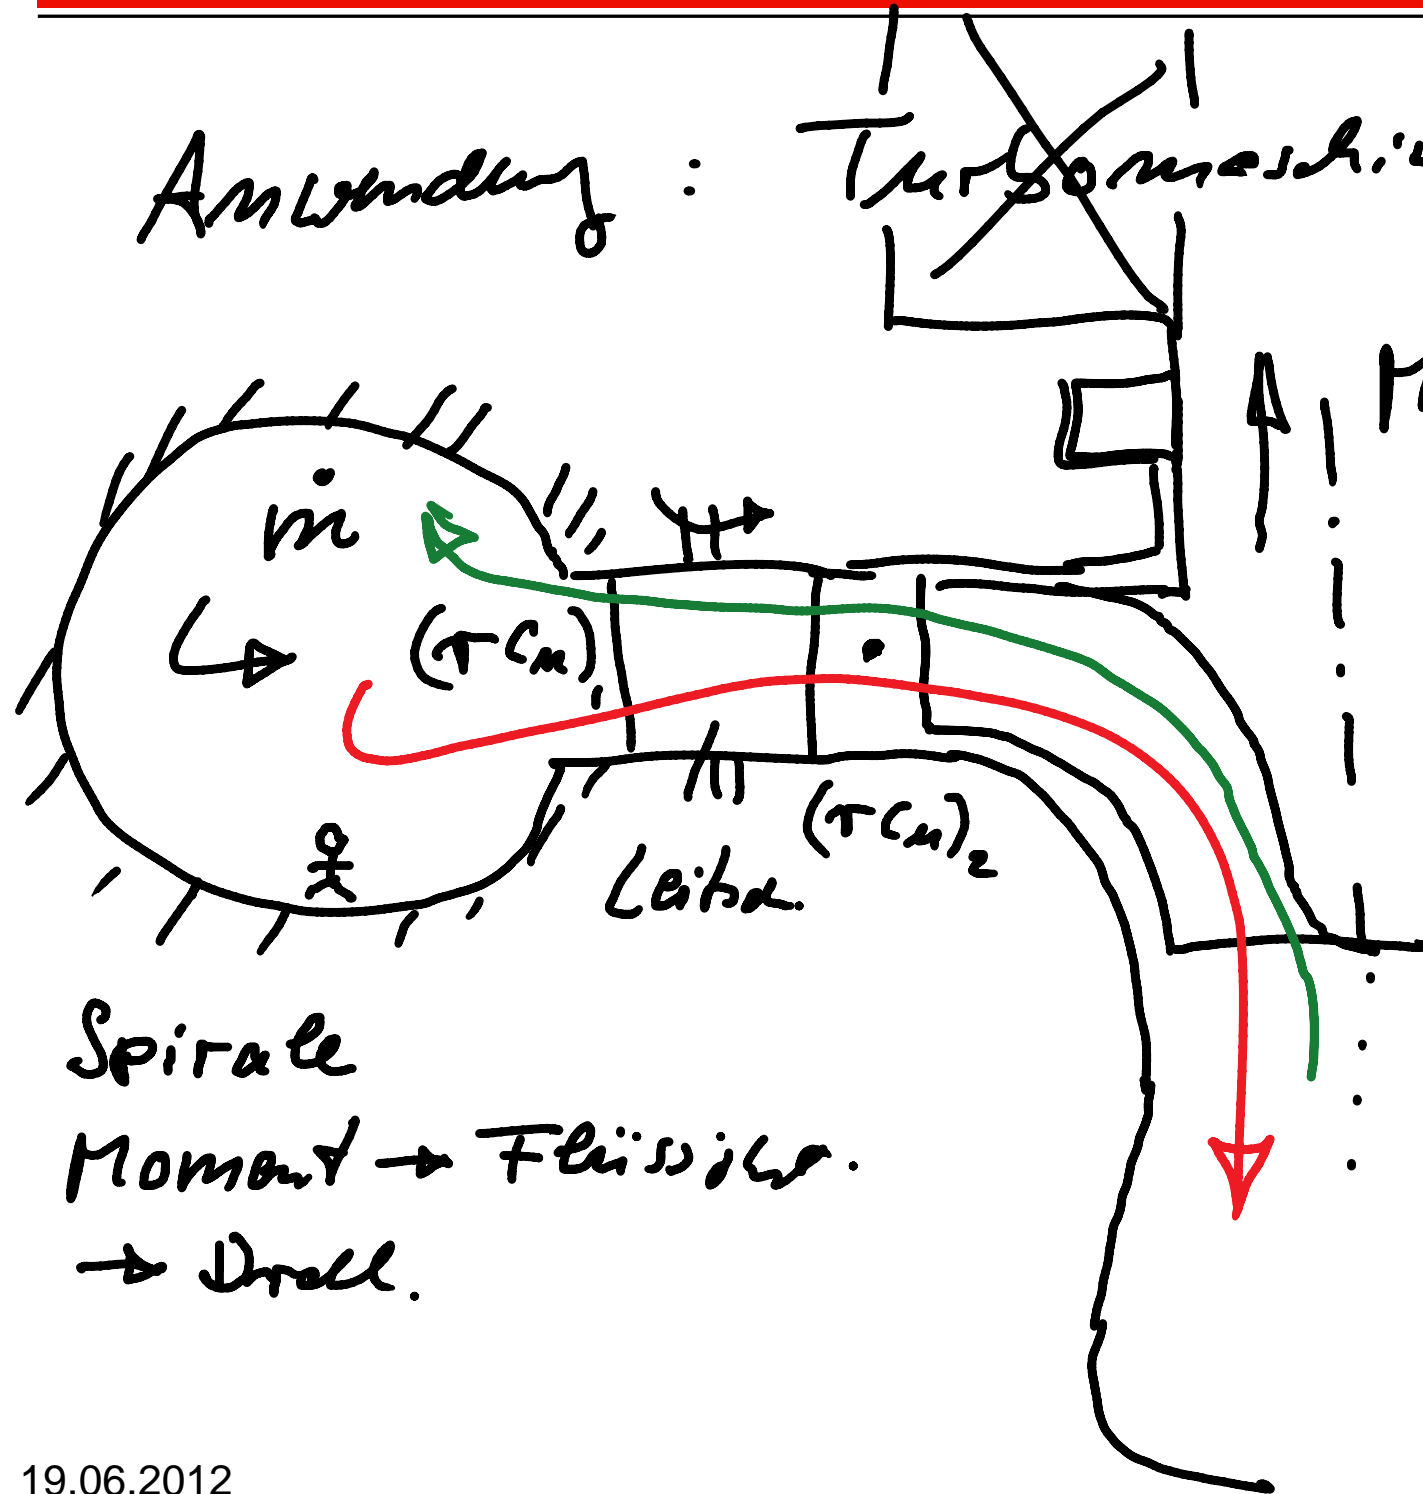 Anwendung : Turbomaschi
M
ṁ
(r cu)
(r cu)2
Leitsch.
Spirale
Moment → Flüssigk.
→ Drall.
19.06.2012